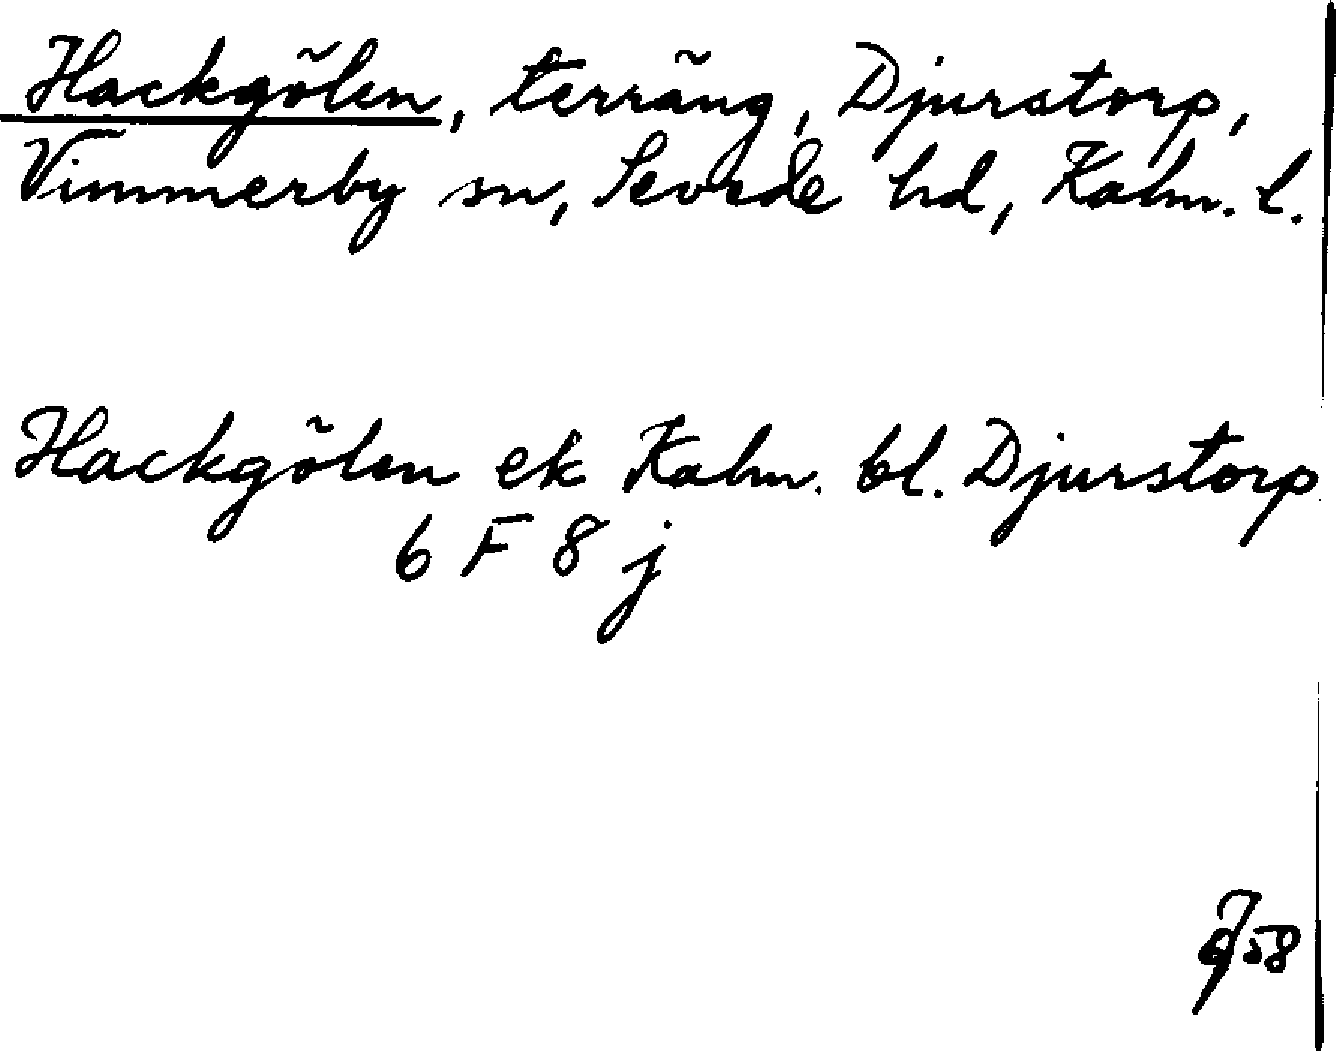 Hackgölen, terräng, Djurstorp,
Vimmerby sn, Sevede hd, Kalm. l.
Hackgölen ek Kalm. bl. Djurstorp
6 F 8 j
58